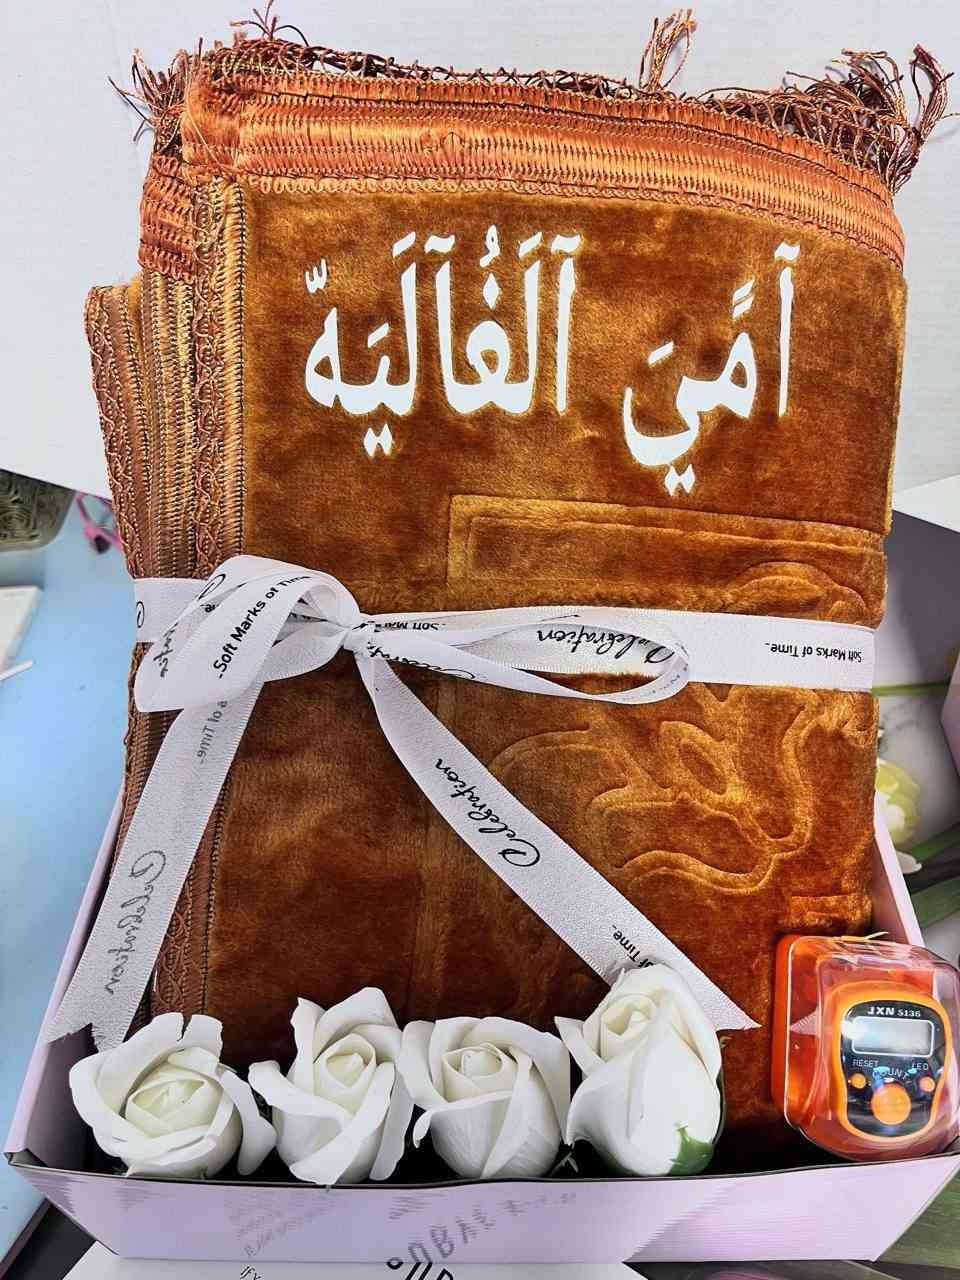 أمي الغاليه
Soft Marks of Time
Soft
Celebration
Soft Marks of Time
Celebration
Celebration
of Time
JXN 5136
RESET
LED
COUNT